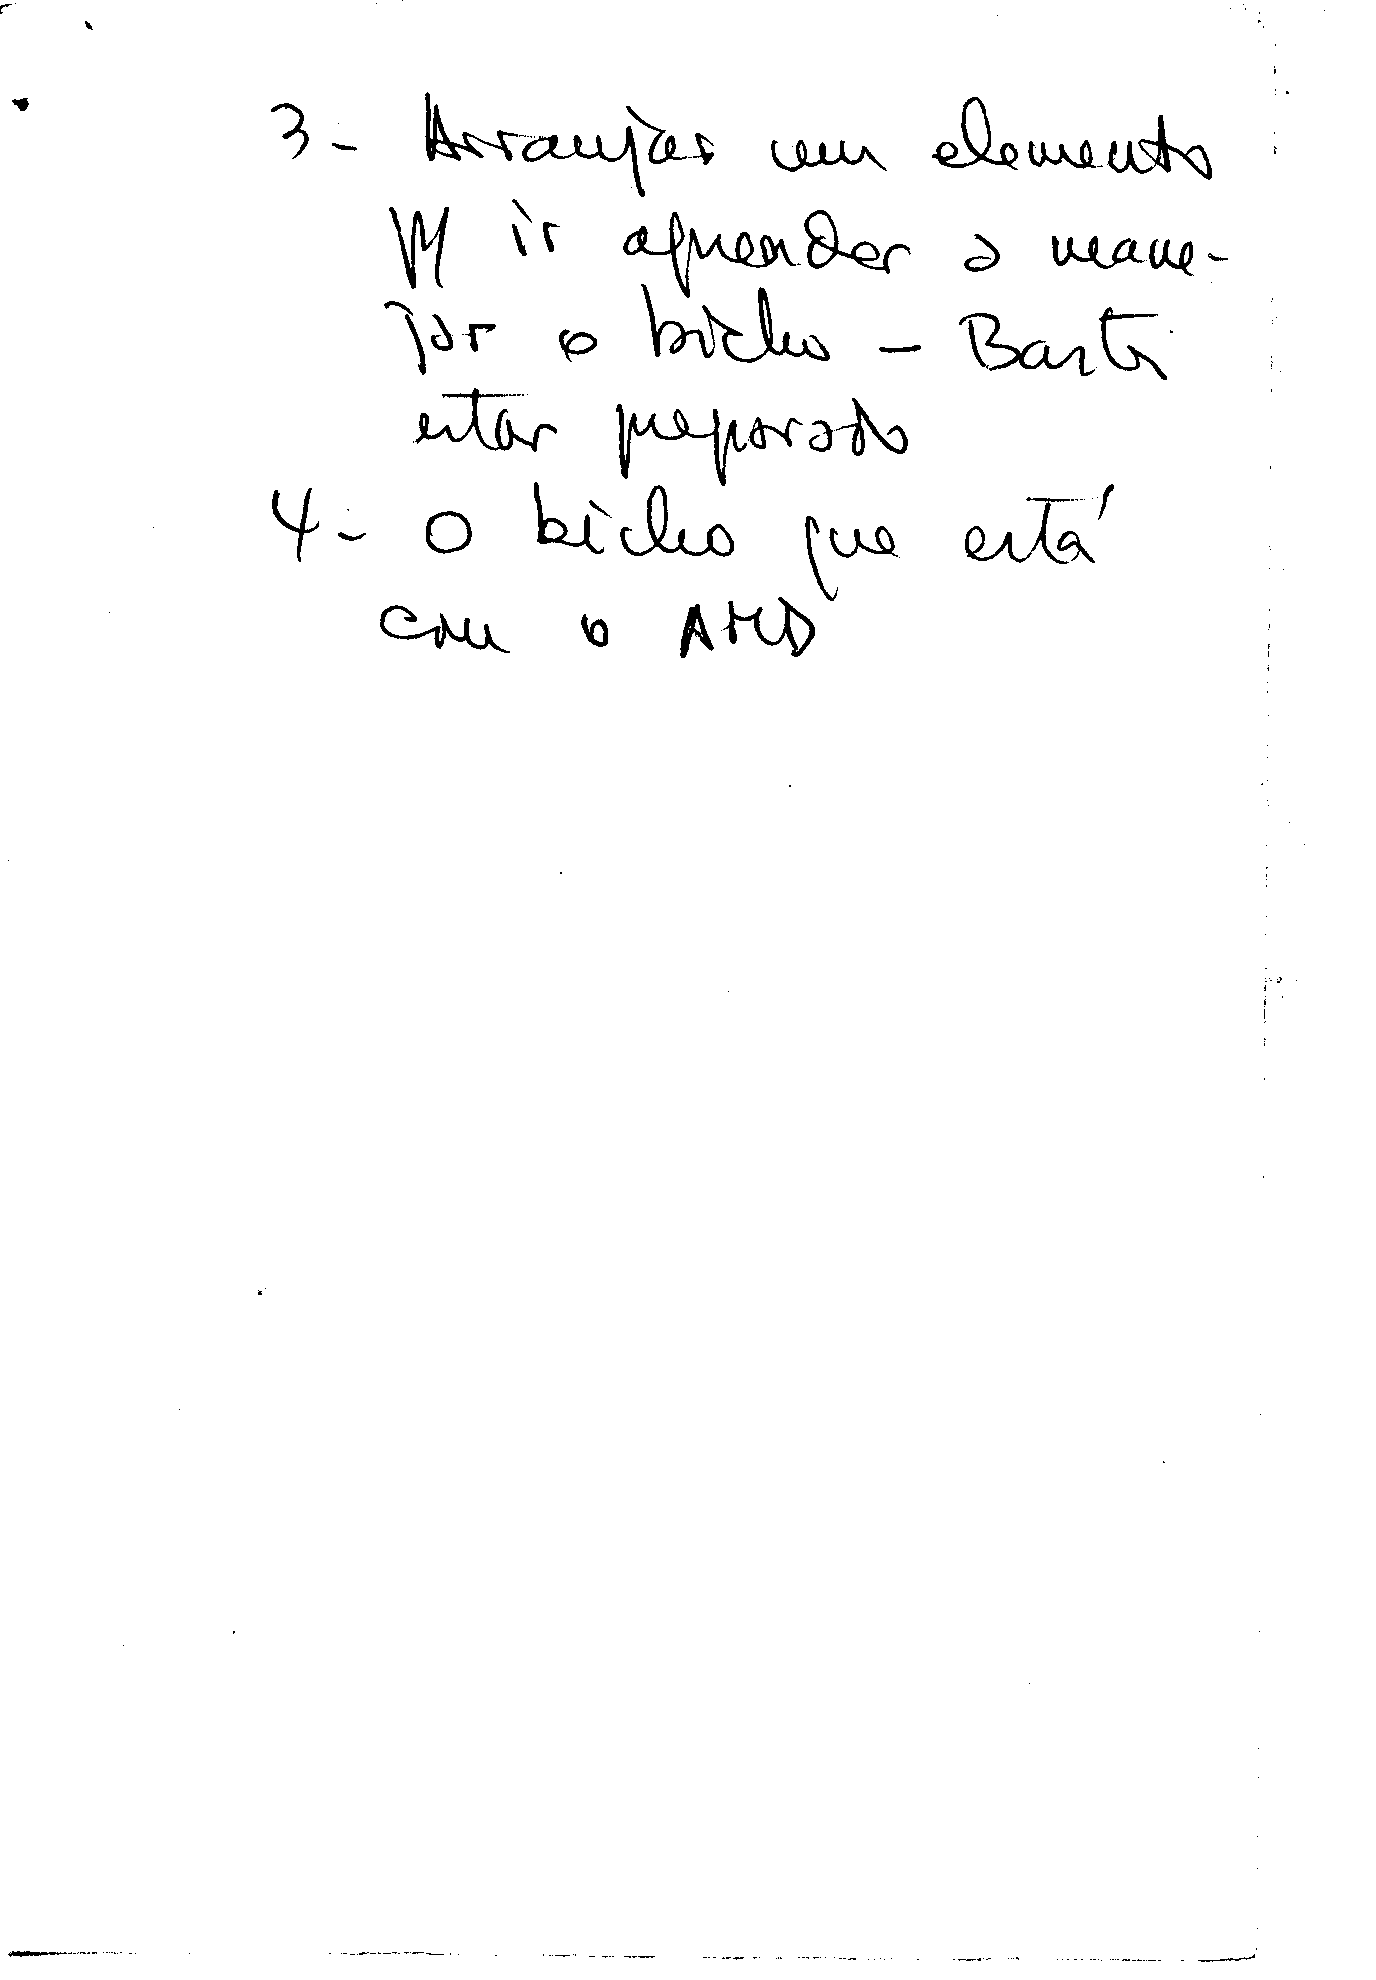 3 - Arranjar um elemento
p/ ir aprender a mane-
jar o bicho - Basta
estar preparado
4 - O bicho que está
com o AMD